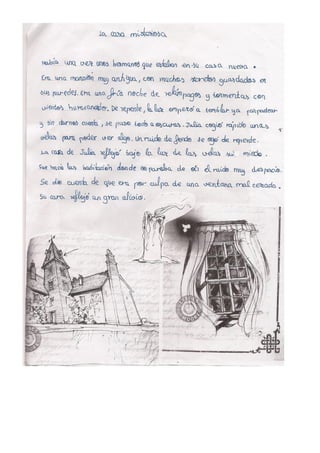 La casa misteriosa
Había una vez unos hermanos que estaban en su casa nueva.
Era una mansión muy antigua, con muchos secretos guardados en
sus paredes. Era una fría noche de relámpagos y tormentas con
vientos huracanados. De repente, la luz empezó a temblar ya parpadear
y sin darnos cuenta, se puso todo a oscuras. Julia cogió rápido unas
velas para poder ver algo. Un ruido de fondo se oyó de repente.
La cara de Julia reflejó bajo la luz de las velas su miedo.
Fue hacia la habitación donde se paraba de oír el ruido muy despacio.
Se dio cuenta de que era por culpa de una ventana mal cerrada.
Su cara reflejó un gran alivio.